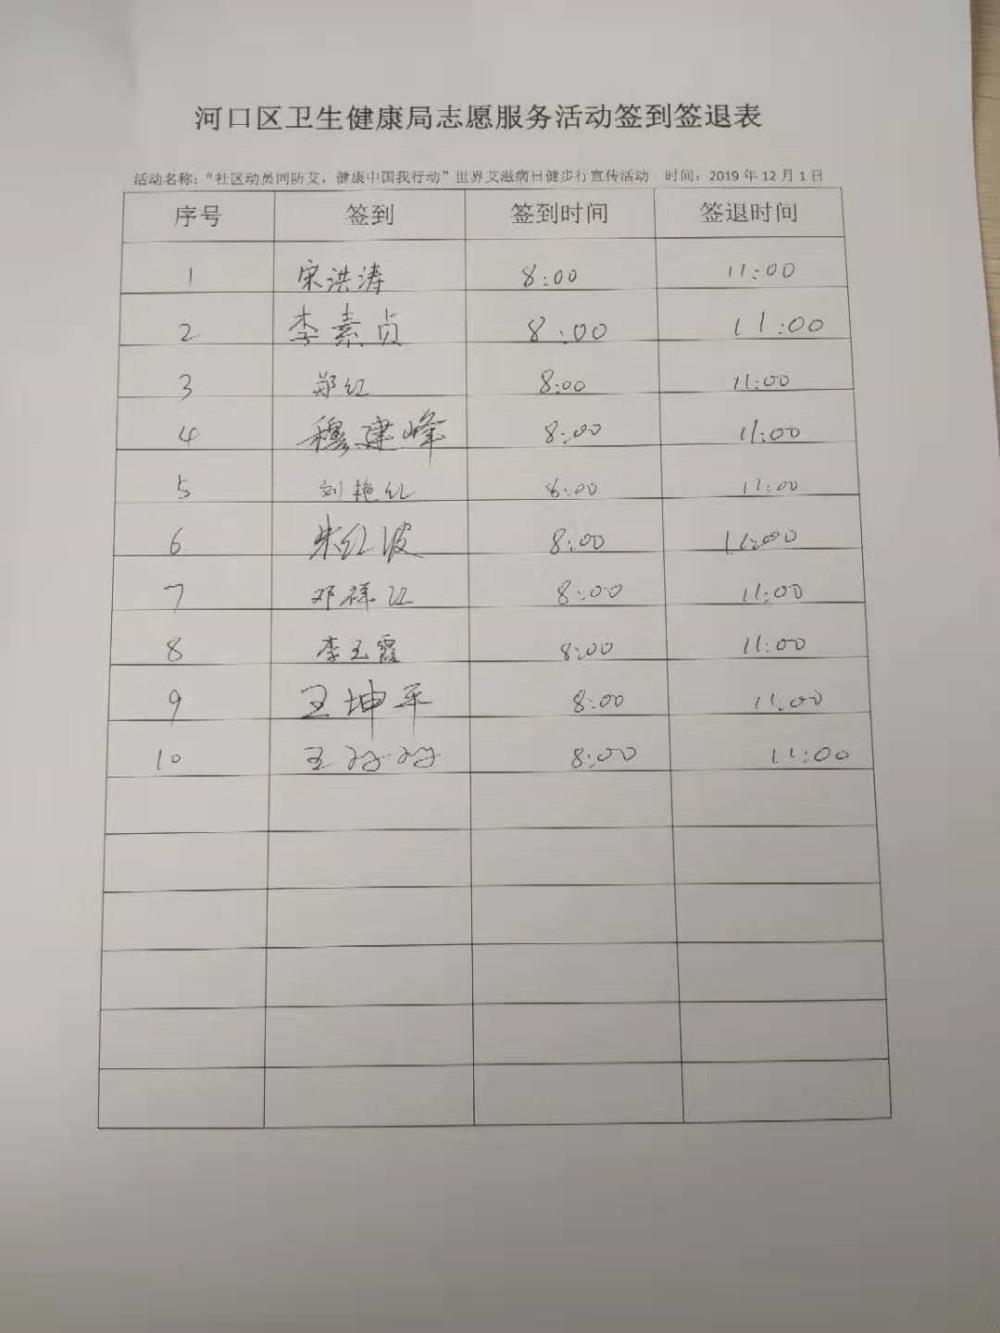 河口区卫生健康局志愿服务活动签到签退表
活动名称：“社区动员同防艾，健康中国我行动”世界艾滋病日健步行宣传活动 时间：2019 年 12 月 1 日
序号 签到 签到时间 签退时间
1 宋洪涛 8:00 11:00
2 李素贞 8:00 11:00
3 郑红 8:00 11:00
4 穆建峰 8:00 11:00
5 刘艳红 8:00 11:00
6 朱红波 8:00 11:00
7 邓祥江 8:00 11:00
8 李玉霞 8:00 11:00
9 王坤平 8:00 11:00
10 王 8:00 11:00